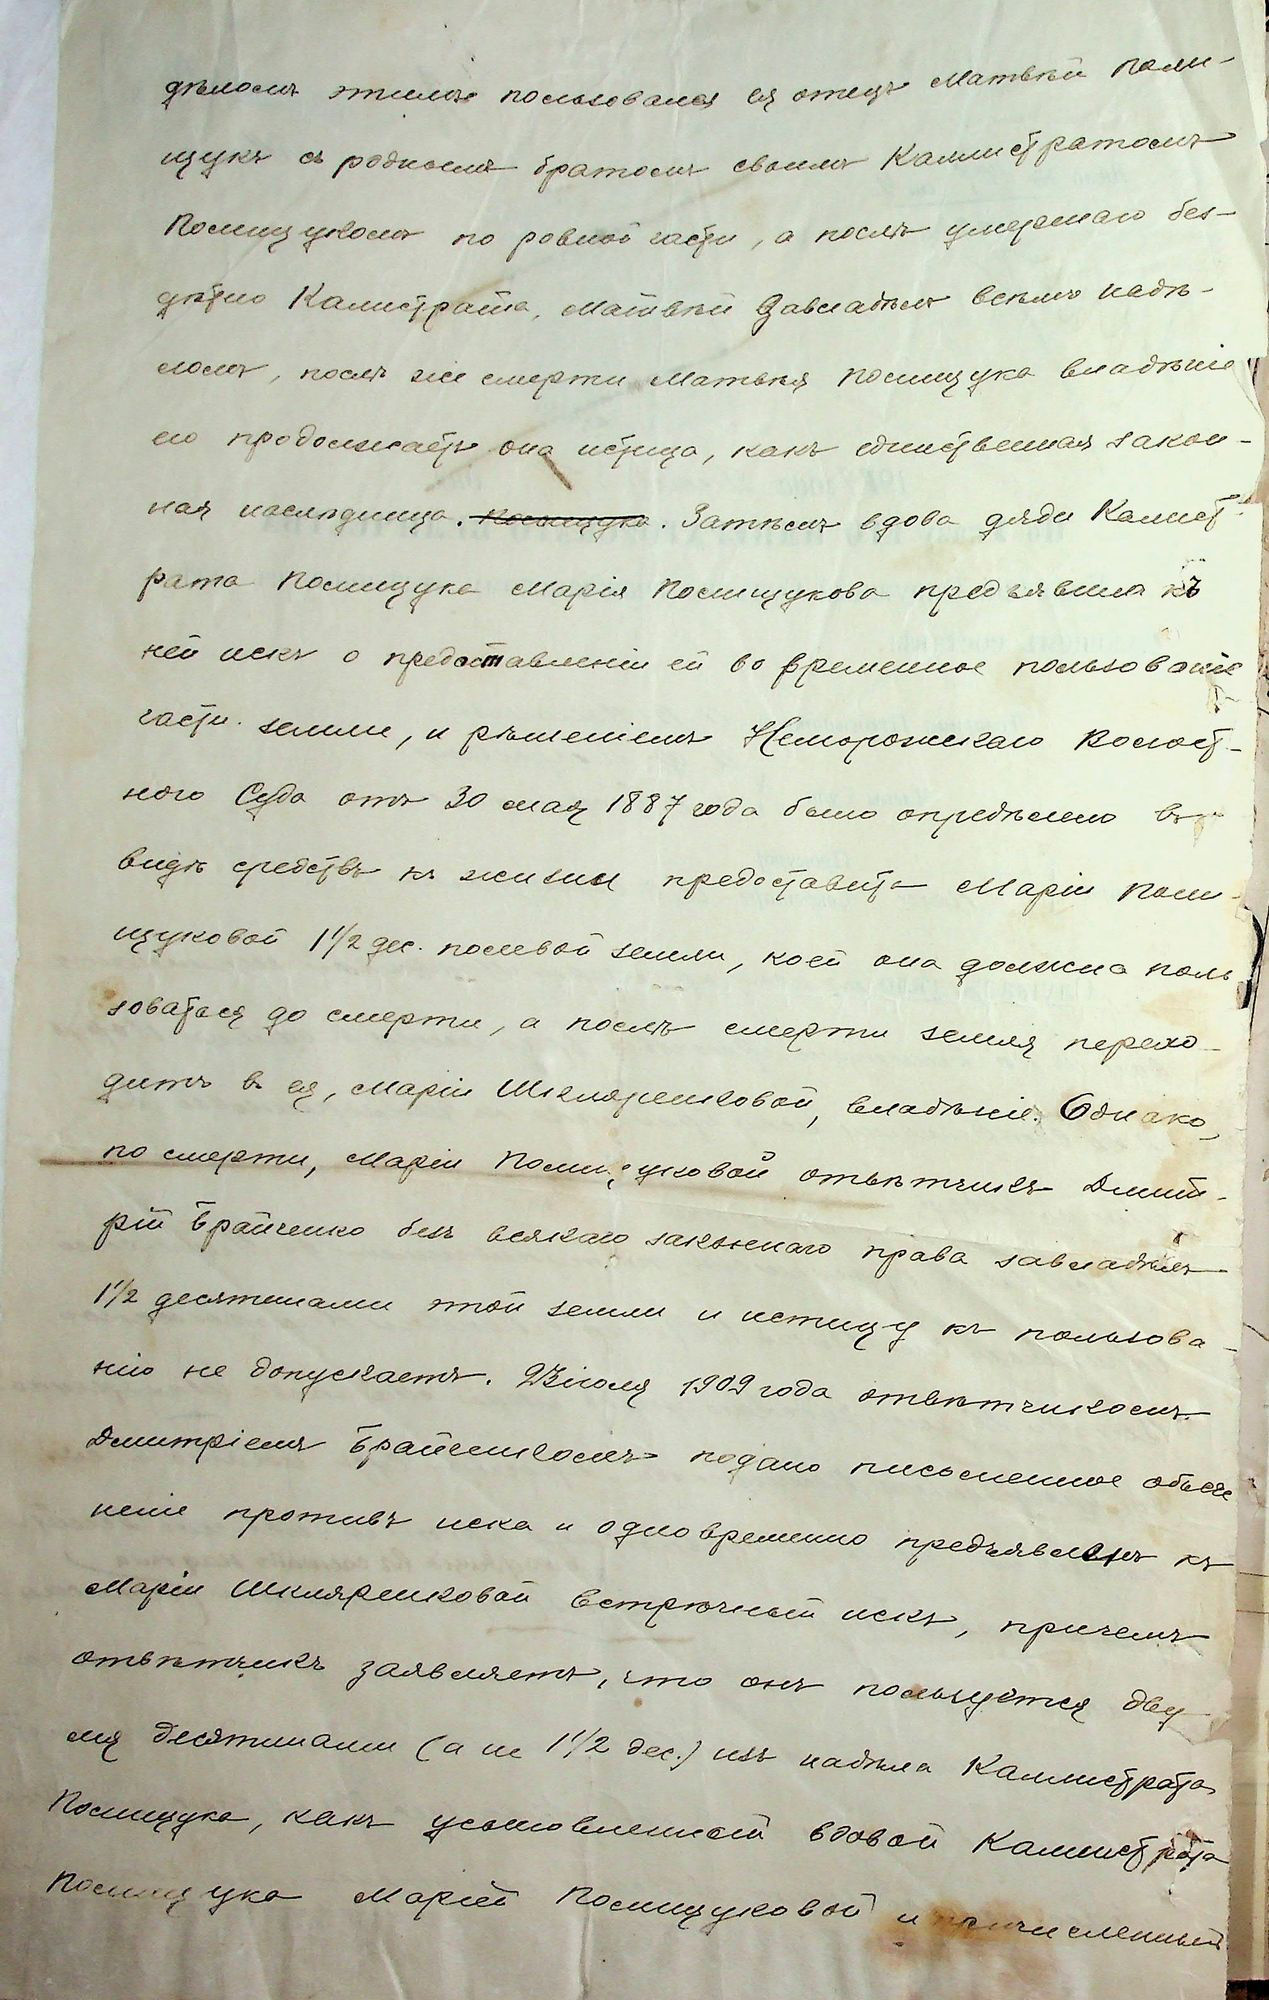 дѣломъ этимъ пользовался ея отецъ Матвѣй Поли-
щукъ съ роднымъ братомъ своимъ Каллистратомъ
Полищукомъ по ровной части, а послѣ умершаго без-
дѣтно Калистрата, Матвѣй завладѣлъ всѣмъ надѣ-
ломъ, послѣ же смерти Матвѣя Полищука владѣніе
его продолжаетъ она истица, какъ единственная закон-
ная наслѣдница. Полищука. Затѣмъ вдова дяди Калист-
рата Полищука Марія Полищукова предъявила къ
ней искъ о предоставленіи ей во временное пользованіе
части земли, и рѣшеніемъ Неморожскаго Волост-
ного Суда отъ 30 мая 1887 года было опредѣлено въ
видѣ средствъ къ жизни предоставить Маріи Поли-
щуковой 1 1/2 дес. полевой земли, коей она должна поль
зоваться до смерти, а послѣ смерти земля перехо-
дитъ въ ея, Маріи Шкляренковой, владѣніе. Однако,
по смерти, Маріи Полищуковой отвѣтчикъ Дмит-
рій Брайченко безъ всякаго законнаго права завладѣлъ
1 1/2 десятинами этой земли и истицу къ пользова-
нію не допускаетъ. іюля 1909 года отвѣтчикомъ
Дмитріемъ Брайченкомъ подано письменное объясне
неніе противъ иска и одновременно предъявленъ къ
Маріи Шкляренковой встрѣчный искъ, причемъ
отвѣтчикъ заявляетъ, что онъ пользуется дву
мя десятинами (а не 1 1/2 дес.) изъ надѣла Каллистрата
Полищука, какъ усыновленный вдовой Каллистрата
Полищука Маріей Полищуковой и причисленный